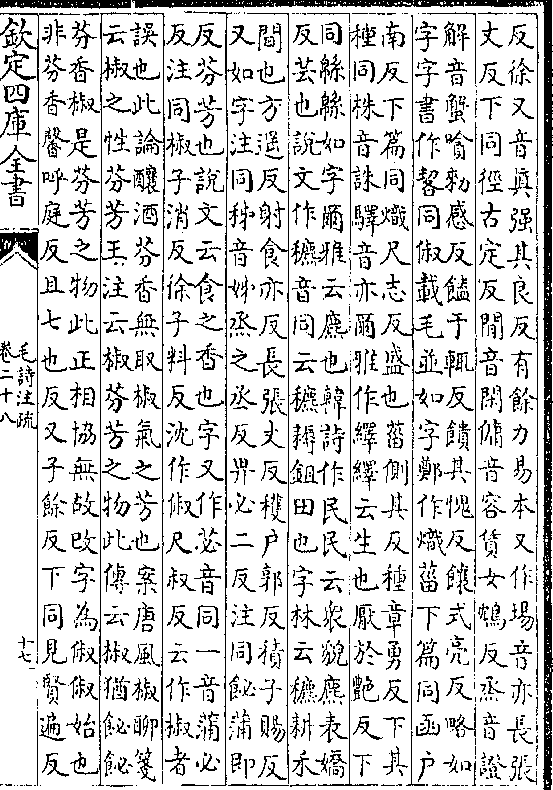 反徐又音真强其良反有餘力易本又作埸音亦長張
丈反下同徑古定反間音閑傭音容賃女鴆反烝音證
解音蟹噴勑感反饁于輒反饋其愧反饟式亮反略如
字字書作䂮同俶載毛並如字鄭作熾菑下篇同函户
南反下篇同熾尺志反盛也菑側其反種章勇反下其
種同株音誅驛音亦爾雅作繹繹云生也厭於艷反下
同緜緜如字爾雅云麃也韓詩作民民云衆貌麃表嬌
反芸也説文作穮音同云穮耨鉏田也字林云穮耕禾
間也方遥反射食亦反長張丈反穫户郭反積子賜反
又如字注同秭音姊烝之丞反畀必二反注同飶蒲即
反芬芳也説文云食之香也字又作苾音同一音蒲必
反注同椒子消反徐子料反沈作俶尺叔反云作椒者
誤也此論釀酒芬香無取椒氣之芳也案唐風椒聊箋
云椒之性芬芳王注云椒芬芳之物此傳云椒猶飶飶
芬香椒是芬芳之物此正相協無故改字為俶俶始也
非芬香馨呼庭反且七也反又子餘反下同見賢遍反
欽定四庫全書
毛詩注疏
卷二十八
十七